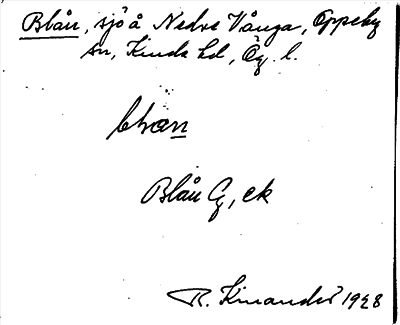 Blån, sjö å Nedre Vånga, Oppeby
sn, Kinda hd, Ög. l.
Blån G, ek
R. Kinander 1928